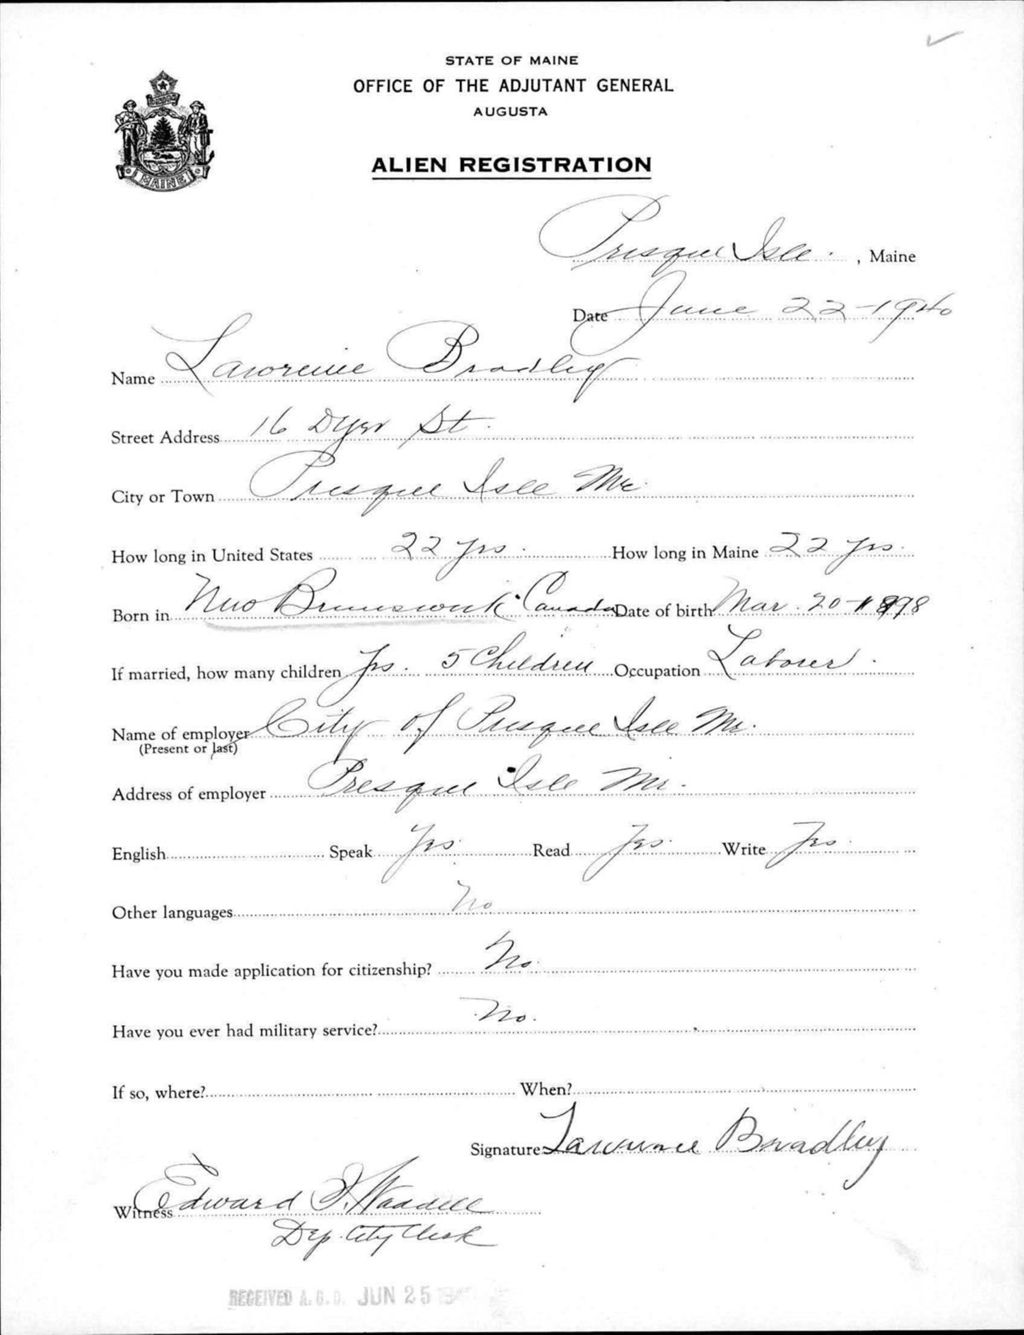 STATE OF MAINE
OFFICE OF THE ADJUTANT GENERAL
AUGUSTA
MAINE
ALIEN REGISTRATION
Presque Isle. , Maine
Date June 22-1940
Name Lawrence Bradley
Street Address 16 Dyer St.
City or Town Presque Isle Me.
How long in United States 22 yrs. How long in Maine 22 yrs.
Born in New Brunswick Canada Date of birth Mar. 20-1898
If married, how many children Yes. 5 Children Occupation Laborer.
Name of employer City of Presque Isle Me.
(Present or last)
Address of employer Presque Isle Me.
English Speak Yes. Read Yes. Write Yes.
Other languages No
Have you made application for citizenship? No.
Have you ever had military service? No.
If so, where? When?
Signature Lawrence Bradley
Witness Edward J. Waddell
Dep. City Clerk
RECEIVED A. G. O. JUN 25